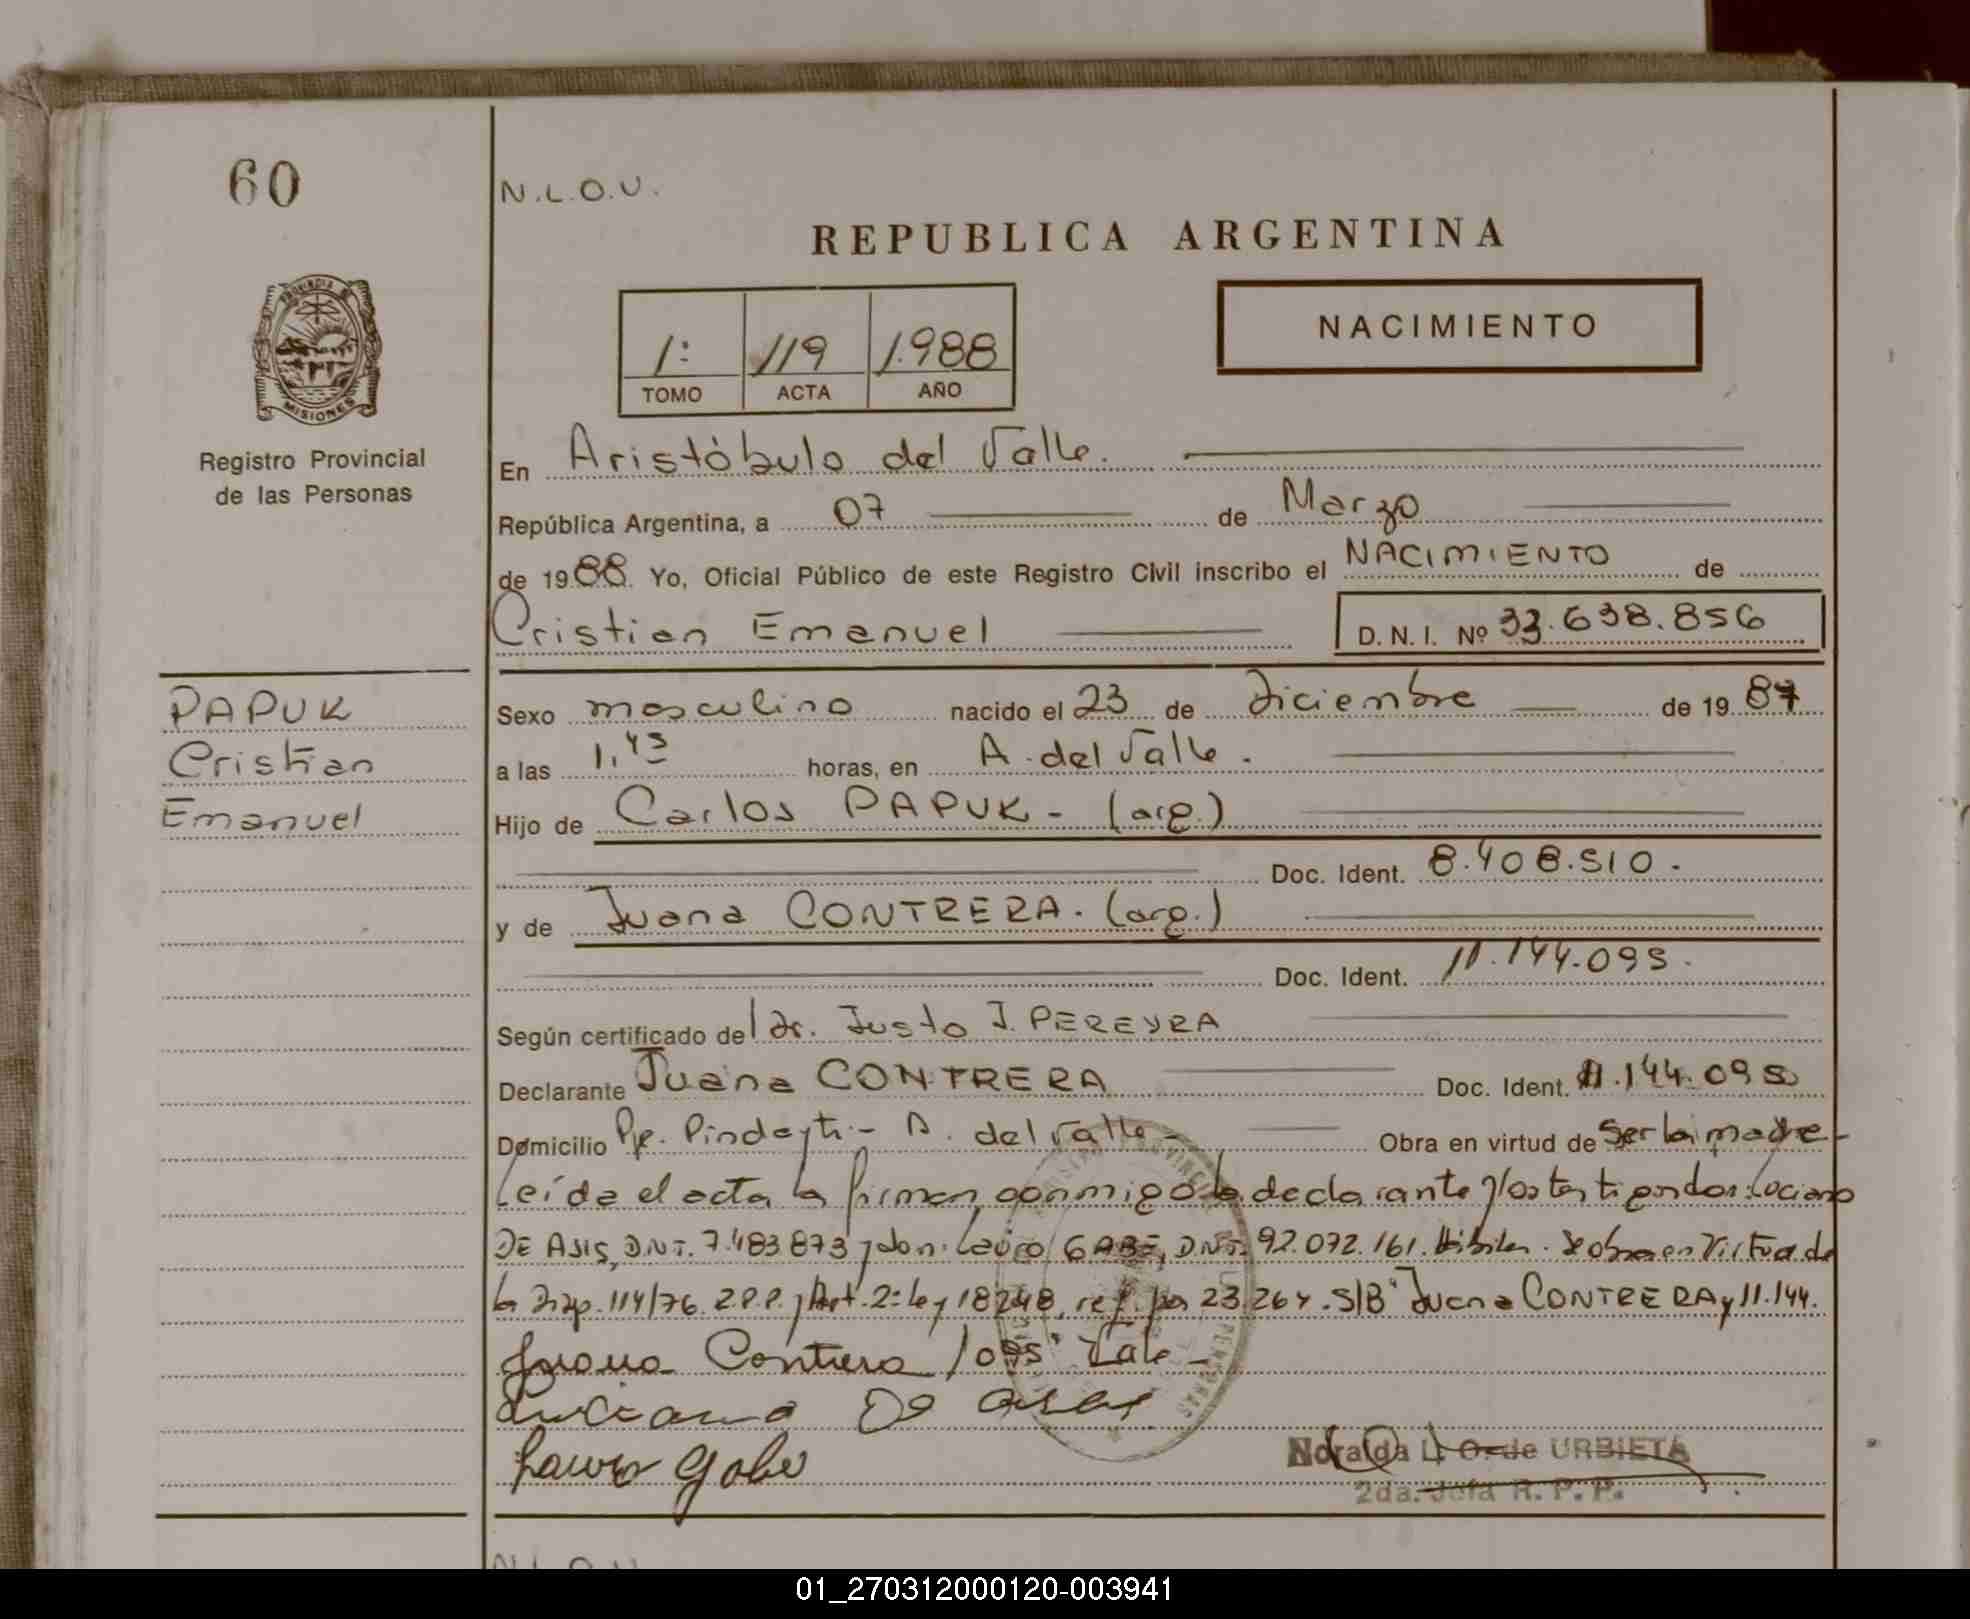 60
N.L.O.U.
REPUBLICA ARGENTINA
1: 119 1.988
TOMO ACTA AÑO
NACIMIENTO
PROVINCIA DE
MISIONES
Registro Provincial
de las Personas
En Aristóbulo del Valle.
República Argentina, a 07 de Marzo
de 1988. Yo, Oficial Público de este Registro Civil inscribo el NACIMIENTO de
Cristian Emanuel D.N.I. Nº 33.638.856
PAPUK
Cristian
Emanuel
Sexo masculino nacido el 23 de diciembre de 1987
a las 1,45 horas, en A. del Valle.
Hijo de Carlos PAPUK - (arg.)
Doc. Ident. 8.408.510.
y de Juana CONTRERA. (arg.)
Doc. Ident. 11.144.095.
Según certificado del dr. Justo J. PEREYRA
Declarante Juana CONTRERA Doc. Ident. 11.144.095
Domicilio Pje. Pindayti - A. del Valle - Obra en virtud de ser la madre -
Leída el acta la firman conmigo la declarante y los testigos don: Luciano
DE ASIS, D.N.I. 7.483.873 y don: Lauro GABE, D.N.I. 92.072.161. Hábiles. Se obra en Virtud de
la Disp. 114/76. R.P.P. y Art. 2º ley 18248, ref. por 23.264. S/B "Juana CONTRERA y 11.144.
Juana Contrera /095" Vale -
Luciano De Asis
Lauro Gabe
Noralda L. O. de URBIETA
2da. Jefa R. P. P.
N.L.O.U.
01_270312000120-003941